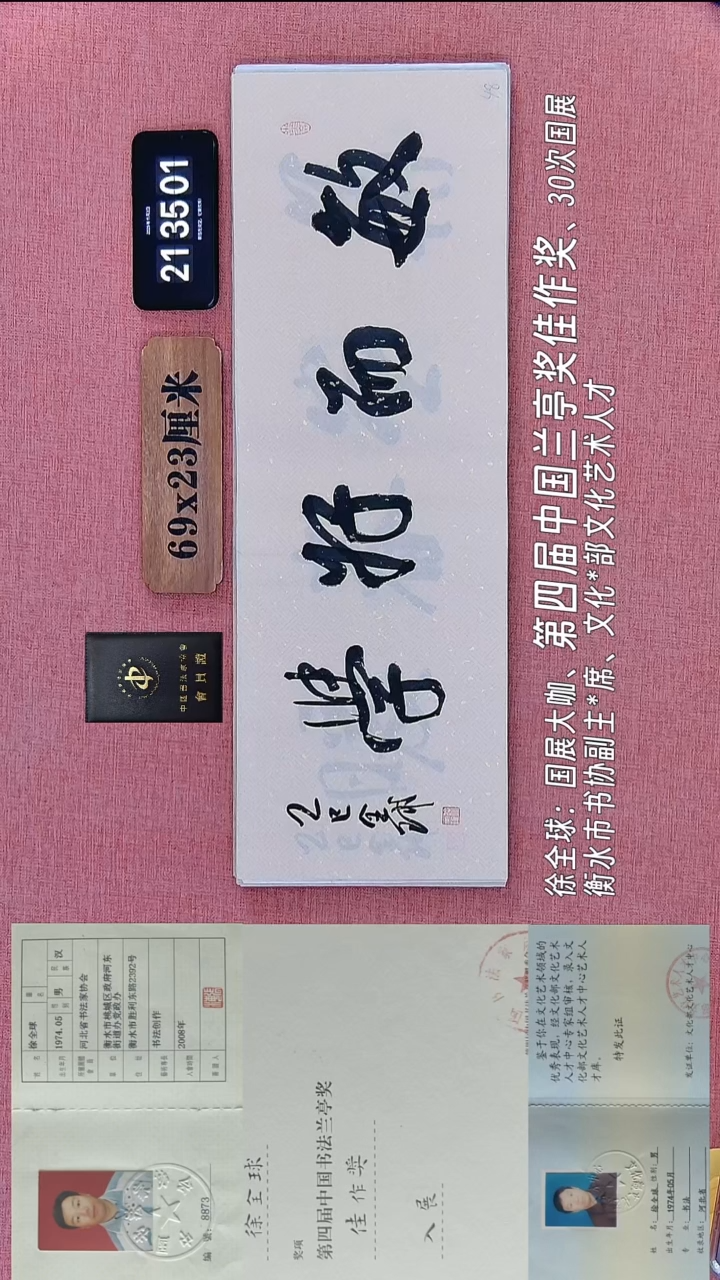 21 35 01
69x23厘米
會員證
敏而好学
乙巳
全球
46
徐全球：国展大咖、第四届中国兰亭奖佳作奖、30次国展
衡水市书协副主*席、文化*部文化艺术人才
编 号: 8873
姓 名 徐全球
出生年月 1974.05 性别 男 民族 汉
河北省书法家协会
衡水市桃城区政府河东
街道办党政办
衡水市胜利东路2392号
书法创作
2008年
徐全球
奖项
第四届中国书法兰亭奖
佳作奖
入展
姓 名：徐全球 性别：男
出生年月：1974年05月
专 业：书法
河北省
鉴于你在文化艺术领域的
优秀表现，经文化部文化艺术
人才中心专家组审核，录入文
化部文化艺术人才中心艺术人
才库。
特发此证
发证单位：文化部文化艺术人才中心